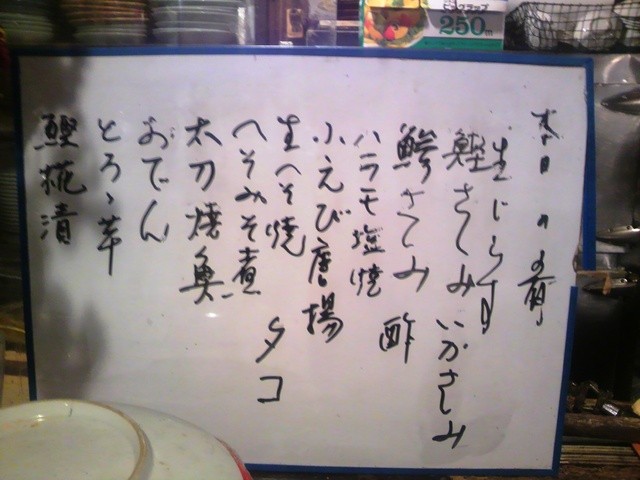 本日の肴
生じらす
鰹さしみ いかさしみ
鯵さしみ 酢
ハラモ塩焼
小えび唐揚
生へそ焼 タコ
へそみそ煮
太刀焼魚
おでん
とろゝ芋
鰹糀漬
250m